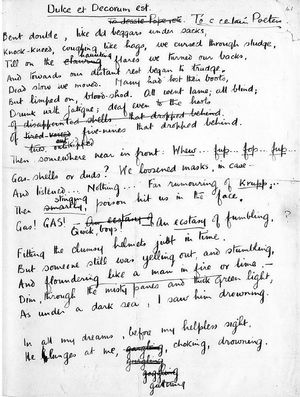 Dulce et Decorum est.
To Jessie Pope etc. To a certain Poetess
Bent double, like old beggars under sacks,
Knock-kneed, coughing like hags, we cursed through sludge,
haunting
Till on the clawing flares we turned our backs,
And towards our distant rest began to trudge.
Dead slow we moved. Many had lost their boots,
But limped on, blood-shod. All went lame; all blind;
Drunk with fatigue; deaf even to the hoots
Of disappointed shells that dropped behind.
Of tired five-nines that dropped behind.
Then somewhere near in front: Whew... fup.. fop.. fup...
Gas-shells or duds? We loosened masks, in case—
And listened... Nothing... Far rumouring of Krupp...
stinging
Then smartly, poison hit us in the face.
Gas! GAS! An ecstasy of fumbling,
Quick, boys!
Fitting the clumsy helmets just in time.
But someone still was yelling out, and stumbling,
And floundering like a man in fire or lime.—
Dim, through the misty panes and thick green light,
As under a dark sea, I saw him drowning.
In all my dreams, before my helpless sight,
He plunges at me, gargling, choking, drowning.
gurgling
goggling
guttering